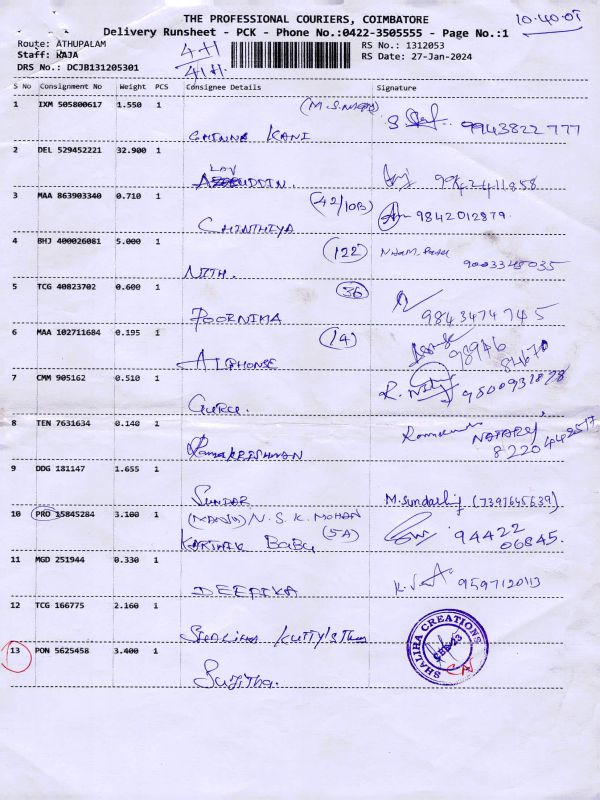 THE PROFESSIONAL COURIERS, COIMBATORE
10.40.01
Delivery Runsheet - PCK - Phone No.:0422-3505555 - Page No.:1
Route: ATHUPALAM
RS No.: 1312053
Staff: RAJA
4H
RS Date: 27-Jan-2024
DRS No.: DCJB131205301
41H
S No Consignment No Weight PCS Consignee Details Signature
1 IXM 505800617 1.550 1
CHINNA KANI 9943822777
2 DEL 529452221 32.900 1
UDDIN.
3 MAA 863903340 0.710 1 (42/10B)
CHINTHIYA 9842012879
4 BHJ 400026081 5.000 1 (122)
NITH. 9003345035
5 TCG 40823702 0.600 1 36
POORNIMA 9843474745
6 MAA 102711684 0.195 1 (14) 98946
ALPHONSE 84670
7 CMM 905162 0.510 1
GURU. 9500931878
8 TEN 7631634 0.140 1
RamaKRISHNAN 8220442517
9 DDG 181147 1.655 1
SUNDAR M.Sundarhij (7397645639)
10 PRO 15845284 3.100 1 N.S.K. MOHAN 94422
KARTHIK BABU (5A) 06845.
11 MGD 251944 0.330 1
DEEPIKA 9597120113
12 TCG 166775 2.160 1
13 PON 5625458 3.400 1
Sujitha.
SHALIHA CREATIONS